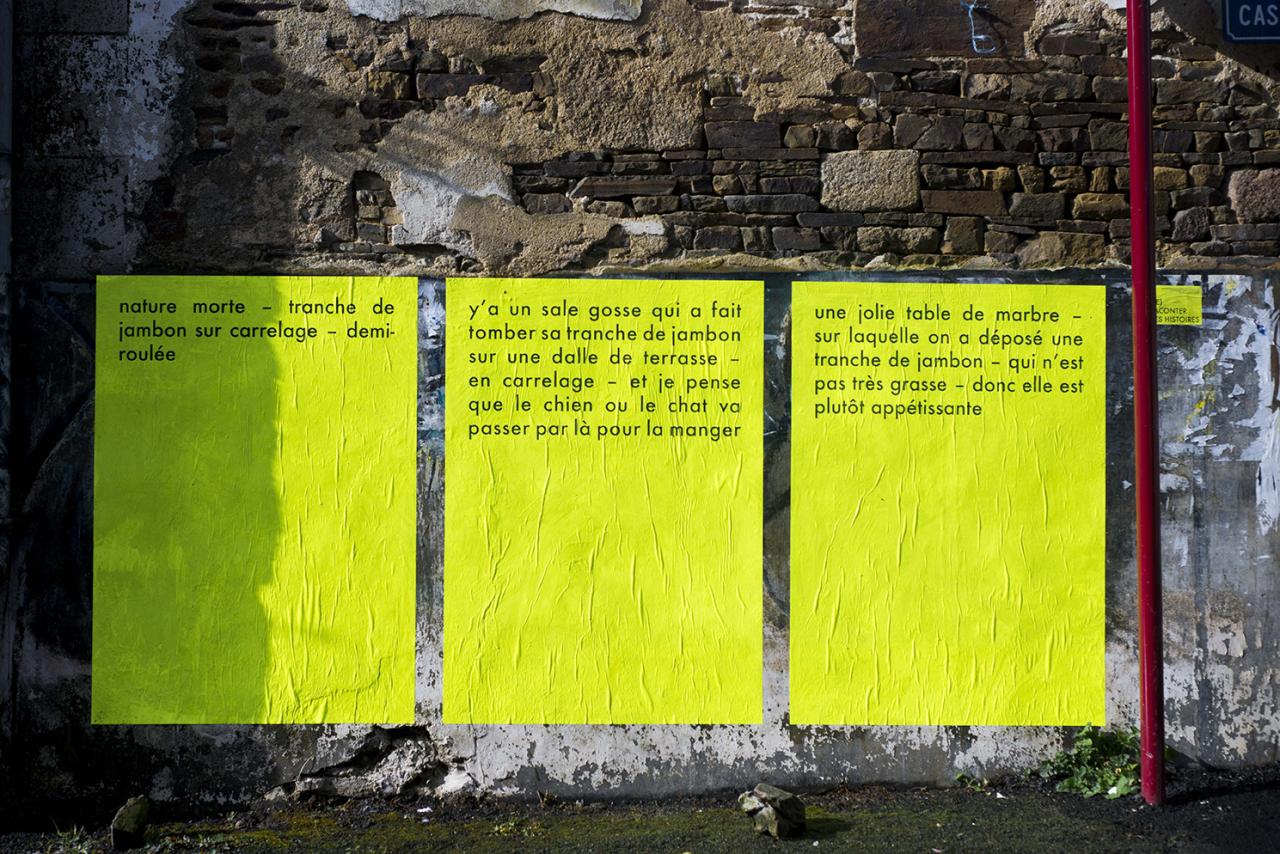 nature morte – tranche de
jambon sur carrelage – demi-
roulée
y'a un sale gosse qui a fait
tomber sa tranche de jambon
sur une dalle de terrasse –
en carrelage – et je pense
que le chien ou le chat va
passer par là pour la manger
une jolie table de marbre –
sur laquelle on a déposé une
tranche de jambon – qui n'est
pas très grasse – donc elle est
plutôt appétissante
CAS
HISTOIRES